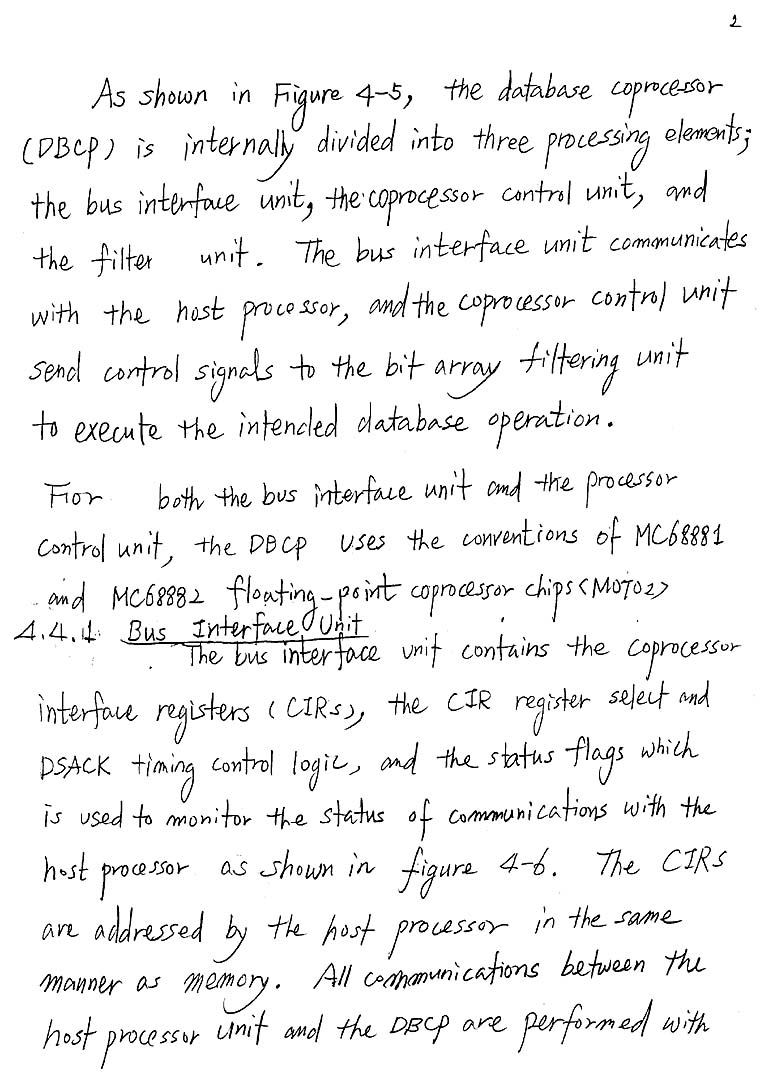 2
As shown in Figure 4-5, the database coprocessor
(DBCP) is internally divided into three processing elements;
the bus interface unit, the coprocessor control unit, and
the filter unit. The bus interface unit communicates
with the host processor, and the coprocessor control unit
send control signals to the bit array filtering unit
to execute the intended database operation.
For both the bus interface unit and the processor
control unit, the DBCP uses the conventions of MC68881
and MC68882 floating-point coprocessor chips <MOTO2>
4.4.1 Bus Interface Unit
The bus interface unit contains the coprocessor
interface registers (CIRs), the CIR register select and
DSACK timing control logic, and the status flags which
is used to monitor the status of communications with the
host processor as shown in figure 4-6. The CIRs
are addressed by the host processor in the same
manner as memory. All communications between the
host processor unit and the DBCP are performed with